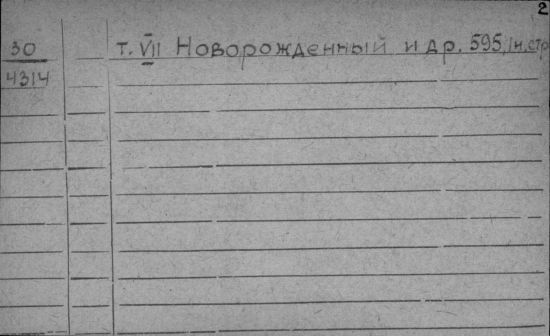 2
30 т. VII Новорожденный и др. 595, 1н. стр
4314